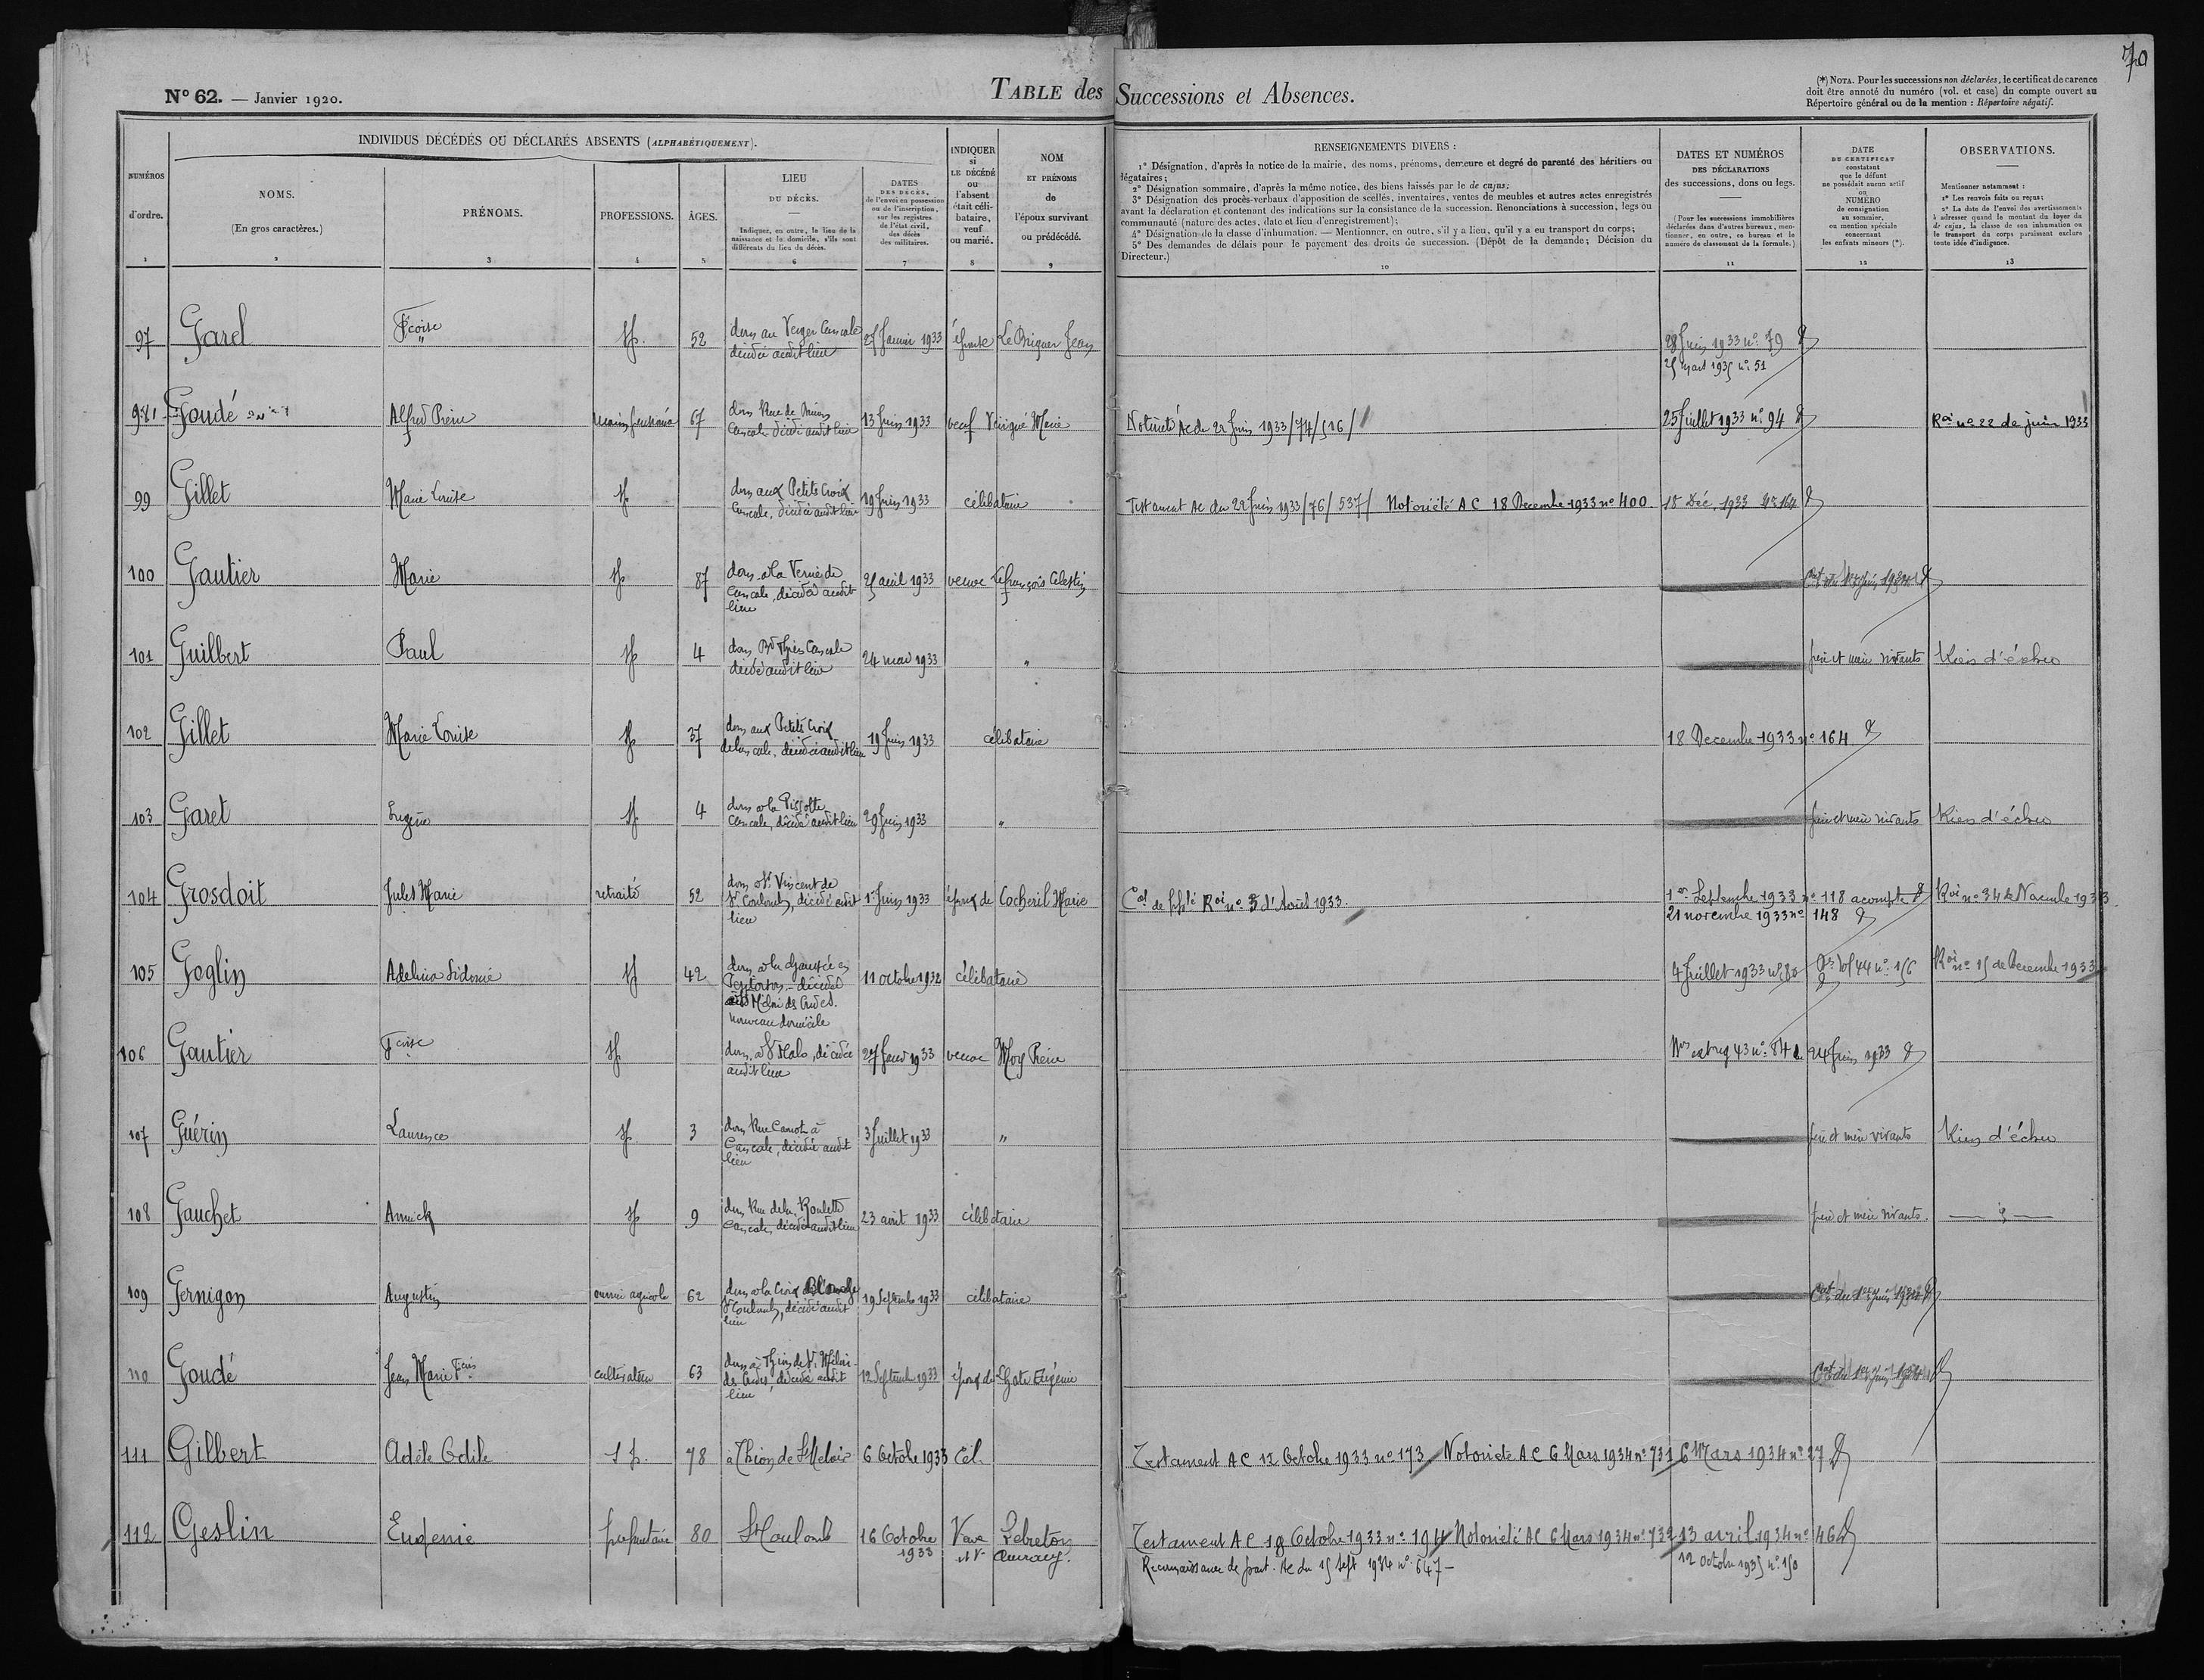 70
N° 62. — Janvier 1920.
TABLE des Successions et Absences.
(*) NOTA. Pour les successions non déclarées, le certificat de carence
doit être annoté du numéro (vol. et case) du compte ouvert au
Répertoire général ou de la mention : Répertoire négatif.
NUMÉROS
d'ordre.
1
INDIVIDUS DÉCÉDÉS OU DÉCLARÉS ABSENTS (ALPHABÉTIQUEMENT).
NOMS.
(En gros caractères.)
2
PRÉNOMS.
3
PROFESSIONS.
4
ÂGES.
5
LIEU
DU DÉCÈS.
Indiquer, en outre, le lieu de la
naissance et le domicile, s'ils sont
différents du lieu du décès.
6
DATES
DES DÉCÈS,
de l'envoi en possession
ou de l'inscription,
sur les registres
de l'état civil,
des décès
des militaires.
7
INDIQUER
si
LE DÉCÉDÉ
ou
l'absent
était céli-
bataire,
veuf
ou marié.
8
NOM
ET PRÉNOMS
de
l'époux survivant
ou prédécédé.
9
RENSEIGNEMENTS DIVERS :
1° Désignation, d'après la notice de la mairie, des noms, prénoms, demeure et degré de parenté des héritiers ou
légataires;
2° Désignation sommaire, d'après la même notice, des biens laissés par le de cujus;
3° Désignation des procès-verbaux d'apposition de scellés, inventaires, ventes de meubles et autres actes enregistrés
avant la déclaration et contenant des indications sur la consistance de la succession. Renonciations à succession, legs ou
communauté (nature des actes, date et lieu d'enregistrement);
4° Désignation de la classe d'inhumation. — Mentionner, en outre, s'il y a lieu, qu'il y a eu transport du corps;
5° Des demandes de délais pour le payement des droits de succession. (Dépôt de la demande; Décision du
Directeur.)
10
DATES ET NUMÉROS
DES DÉCLARATIONS
des successions, dons ou legs.
(Pour les successions immobilières
déclarées dans d'autres bureaux, men-
tionner, en outre, ce bureau et le
numéro de classement de la formule.)
11
DATE
DU CERTIFICAT
constatant
que le défunt
ne possédait aucun actif
ou
NUMÉRO
de consignation
au sommier,
ou mention spéciale
concernant
les enfants mineurs (*).
12
OBSERVATIONS.
Mentionner notamment :
1° Les renvois faits ou reçus;
2° La date de l'envoi des avertissements
à adresser quand le montant du loyer du
de cujus, la classe de son inhumation ou
le transport du corps paraissent exclure
toute idée d'indigence.
13
97 Garel Fçoise sp. 52 dom au Verger Cancale 27 Janvier 1933 épouse Le Briquer Jean 28 Juin 1933 n° 79
décédée audit lieu 25 mars 1935 n° 51
98 Goudé Alfred Pierre 67 13 Juin 1933 veuf Marie Notoriété Ac du 22 Juin 1933/74/516/ 25 Juillet 1933 n° 94 Roi n° 22 de juin 1933
Cancale décédé audit lieu
99 Gillet Marie Louise sp dom aux Petits Croix 19 Juin 1933 célibataire Testament Ac du 22 Juin 1933/76/537/ Notoriété A C 18 Decembre 1933 n° 400. 18 Déc. 1933 N° 164
Cancale, décédée audit lieu
100 Gautier Marie sp 87 dom à la Verrie de 25 avril 1933 veuve Lefrançois Célestin
Cancale, décédée audit
lieu
101 Guilbert Paul sp 4 dom Bd Thiers Cancale 24 mai 1933 " père et mère vivants Rien d'échu
décédé audit lieu
102 Gillet Marie Louise sp 37 dom aux Petits Croix 19 Juin 1933 célibataire 18 Decembre 1933 n° 164
de Cancale, décédée audit lieu
103 Garet Eugène sp 4 dom à la 29 Juin 1933 " père et mère vivants Rien d'échu
Cancale, décédé audit lieu
104 Grosdoit Jules Marie retraité 52 dom à St Vincent de 1er Juin 1933 époux de Cocheril Marie Roi n° 3 d'Août 1933. 1er Septembre 1933 n° 118 acompte Roi n° 34 de Novembre 1933
St Coulomb, décédé audit 21 novembre 1933 n° 148
lieu
105 Goglin Adelina Sidonie sp 42 11 octobre 1932 célibataire 4 Juillet 1933 n° 80 Roi n° 15 de Decembre 1933
nouveau domicile
106 Gautier Fçoise sp dom. à St Malo, décédée 27 Janv 1933 veuve Moy Pierre 24 Juin 1933
audit lieu
107 Guérin Laurence sp 3 dom Rue Carnot à 3 Juillet 1933 " père et mère vivants Rien d'échu
Cancale, décédée audit
lieu
108 Gauchet Annick sp 9 dom Rue de la Roulette 23 août 1933 célibataire père et mère vivants.
Cancale, décédée audit lieu
109 Gernigon Augustin ouvrier agricole 62 dom à la Croix Blanche 19 Septembre 1933 célibataire
St Coulomb, décédé audit
lieu
110 Goudé Jean Marie Fcois cultivateur 63 12 Septembre 1933 époux de Eugénie
lieu
111 Gilbert Adèle Odile S p. 78 à Thion de St Meloir 6 Octobre 1933 Cel. Testament A C 12 Octobre 1933 n° 173 Notoriété A C 6 Mars 1934 n° 731 6 Mars 1934 n° 27
112 Geslin Eugenie propriétaire 80 St Coulomb 16 Octobre Veuve Lebreton Testament A C 18 Octobre 1933 n° 194 Notoriété AC 6 Mars 1934 n° 732 13 avril 1934 n° 46
1933 Reconnaissance de Ac du 15 Sept 1934 n° 647 – 12 octobre 1935 n° 150